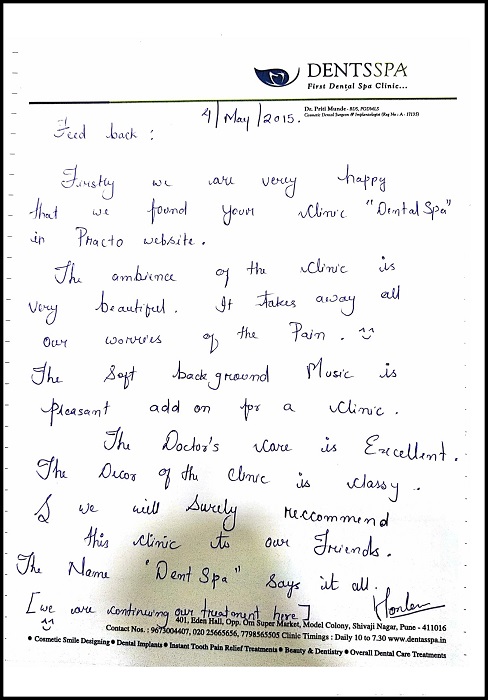 DENTSSPA
First Dental Spa Clinic...
Dr. Priti Munde - BDS, PGDMLS
Cosmetic Dental Surgeon & Implantologist (Reg No : A - 17137)
4/May/2015.
Feed back :
Firstly we are verry happy
that we found your clinic "Dental Spa"
in Practo website.
The ambience of the clinic is
very beautiful. It takes away all
our worries of the Pain. ^^
The Soft back ground Music is
pleasant add on for a clinic.
The Doctor's care is Excellent.
The Decor of the clinic is classy.
& we will Surely reccommend
this clinic to our Friends.
The Name "Dent Spa" says it all.
^^
[we are continuing our treatment here]
401, Eden Hall, Opp. Om Super Market, Model Colony, Shivaji Nagar, Pune - 411016
Contact Nos. : 9673004407, 020 25665656, 7798565505 Clinic Timings : Daily 10 to 7.30 www.dentsspa.in
● Cosmetic Smile Designing ● Dental Implants ● Instant Tooth Pain Relief Treatments ● Beauty & Dentistry ● Overall Dental Care Treatments